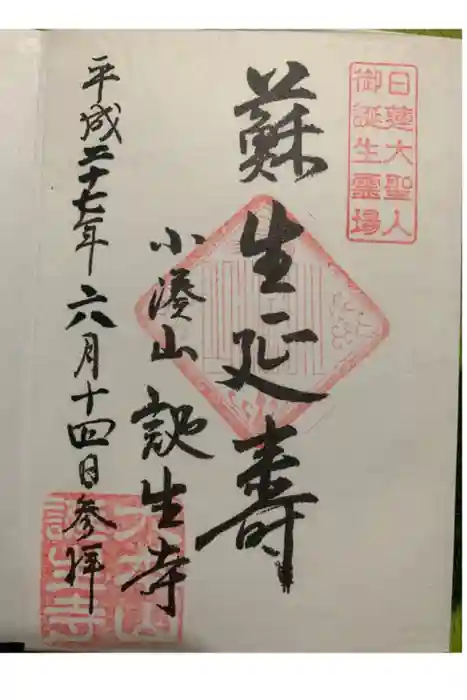 日蓮大聖人
御誕生霊場
蘇生延壽
小湊山 誕生寺
平成二十七年六月十四日参拝
小湊山
誕生寺